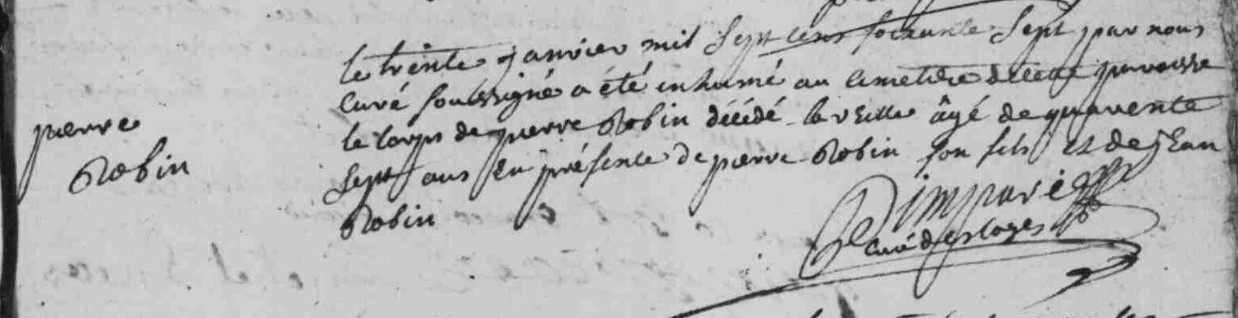 le trente janvier mil sept cens soixante sept par nous
curé soussigné a été inhumé au cimetiere de cette paroisse
pierre
Robin
le corps de pierre Robin décédé la veille âgé de quarente
sept ans En présence de pierre Robin son fils et de jean
Robin
curé des loges